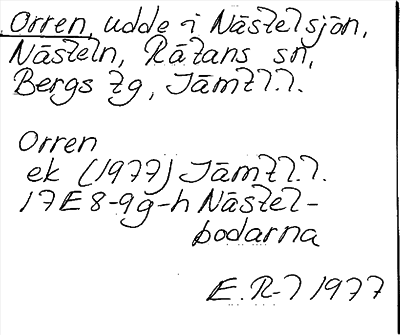 Orren, udde i Nästelsjön,
Nästeln, Rätans sn,
Bergs tg, Jämtl.l.
Orren
ek (1977) Jämtl.l.
17E 8-9g-h Nästel-
bodarna
E. R-l 1977